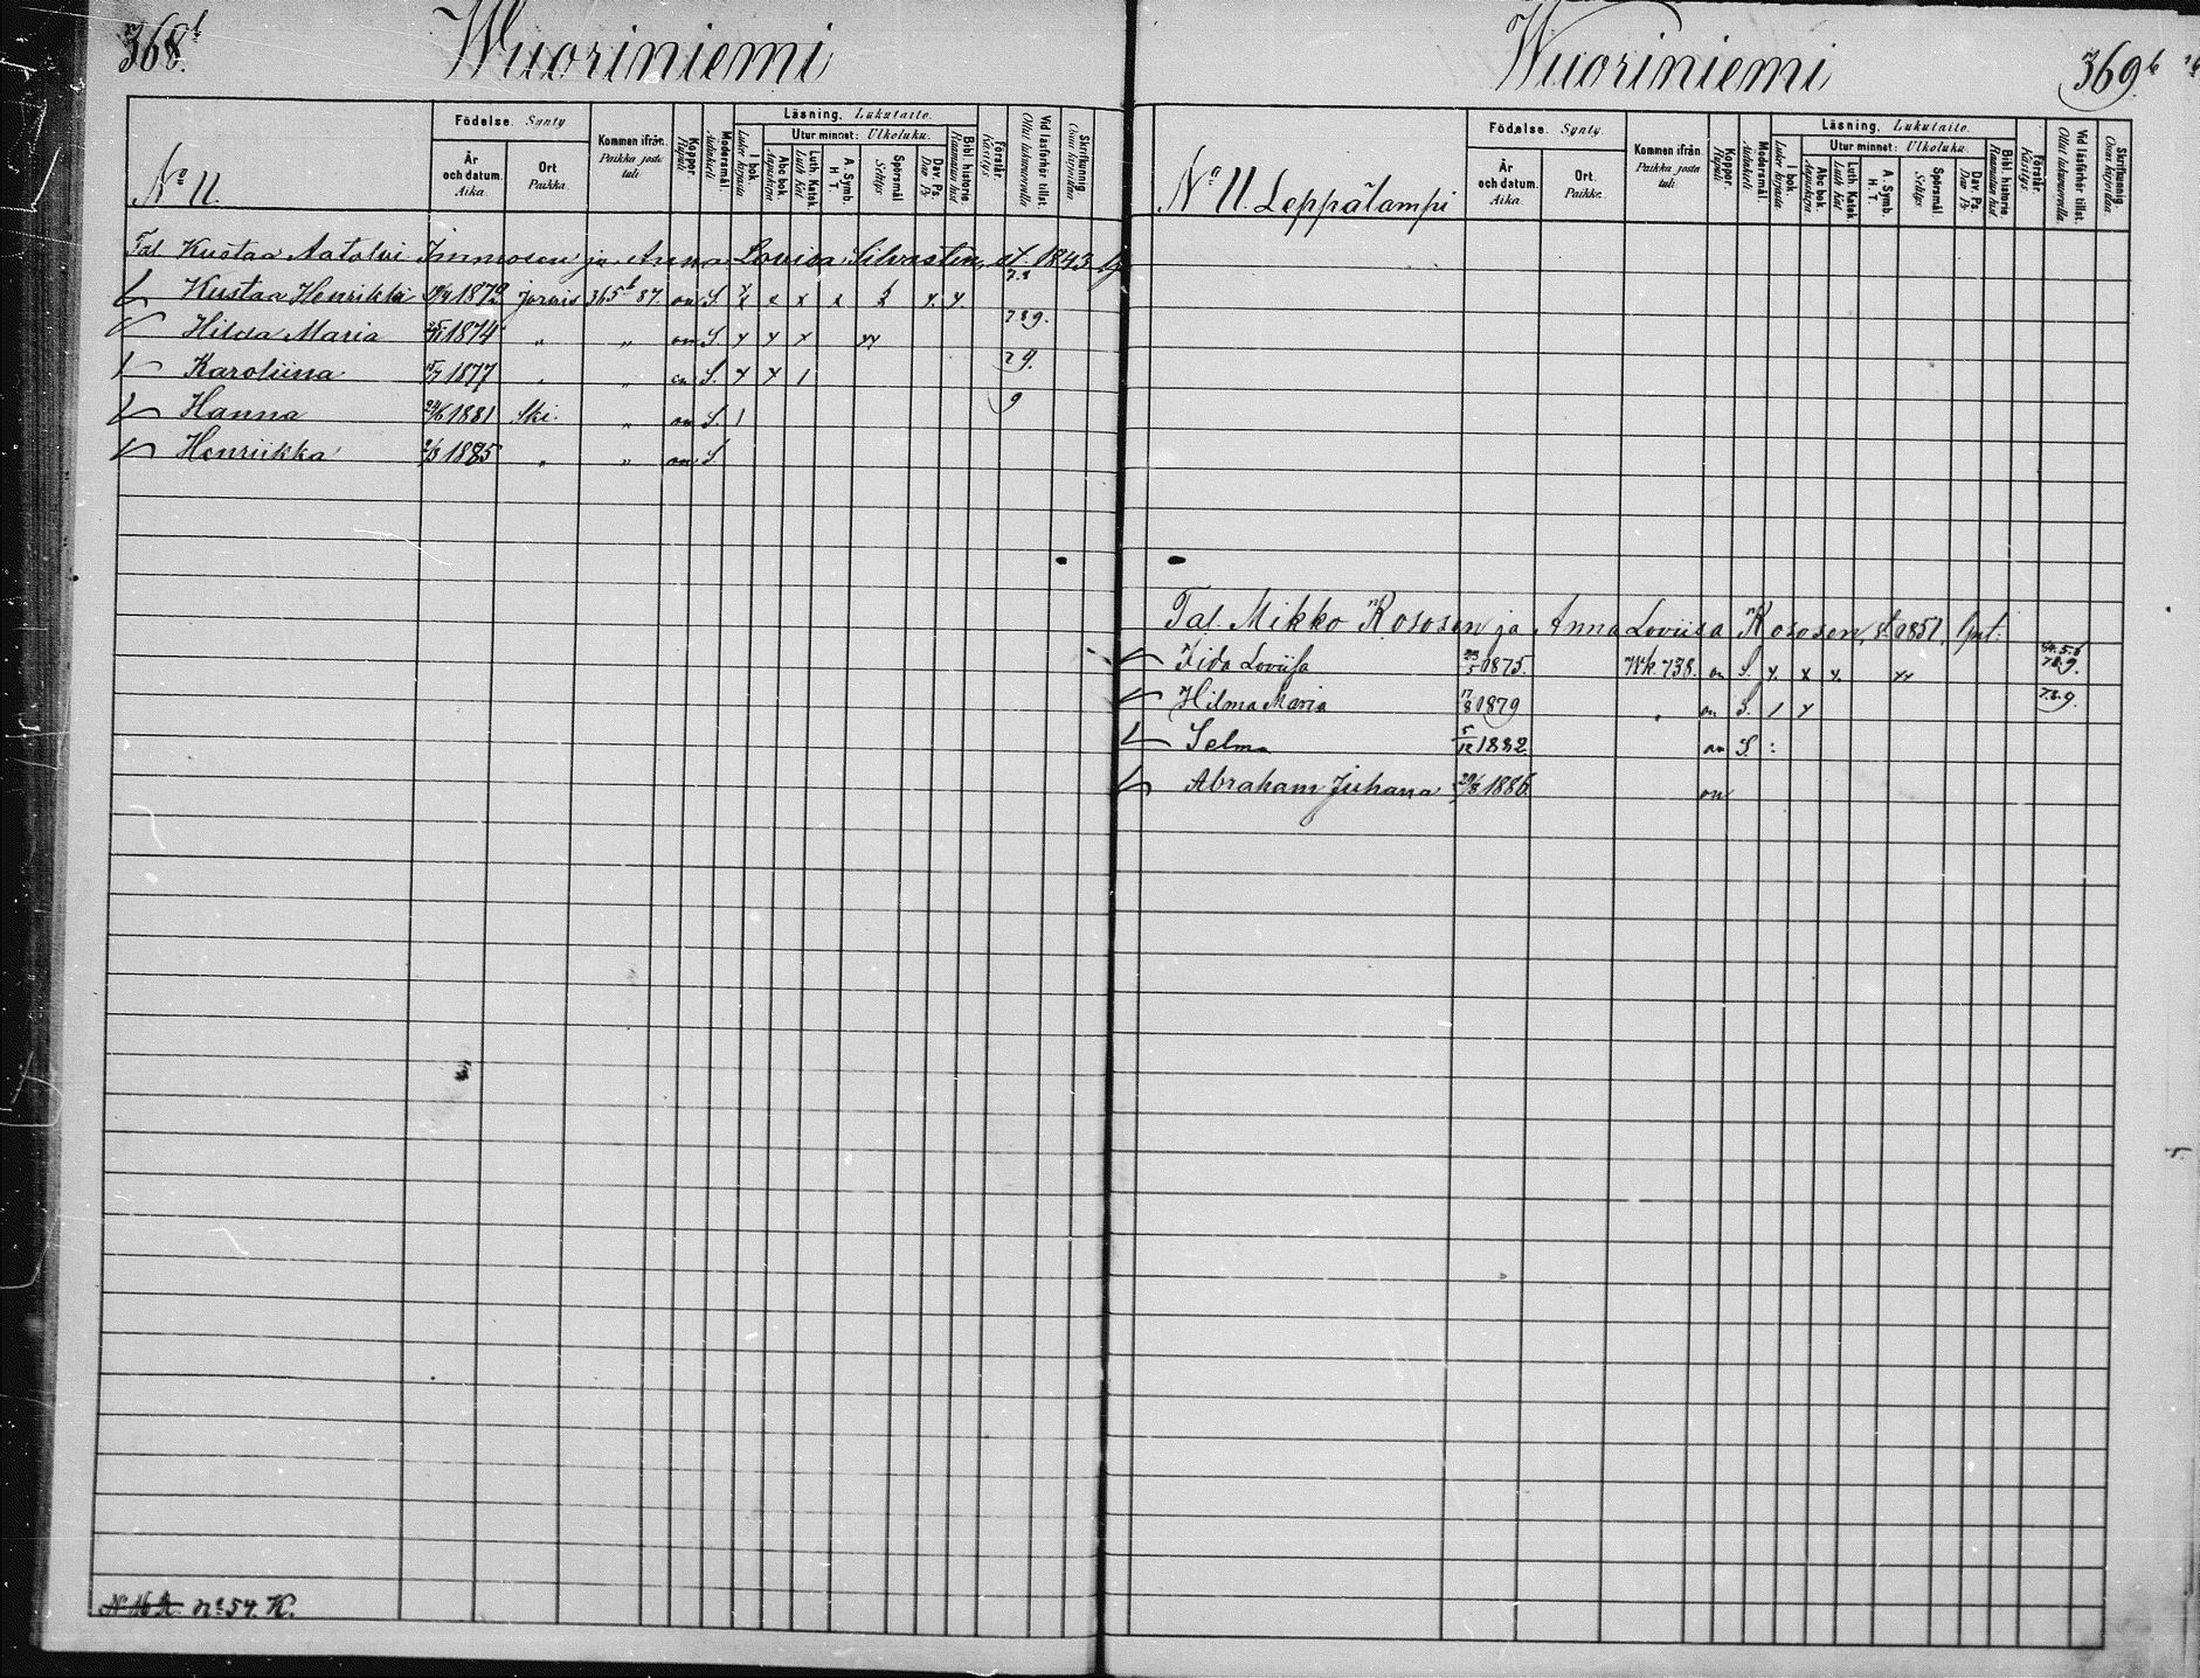 368b
Wuoriniemi
Födelse. Synty
Kommen ifrån. Paikka josta tuli
Koppor. Rupuli
Modersmål. Äidinkieli
Läsning. Lukutaito.
Utur minnet: Ulkoluku.
År och datum. Aika.
Ort Paikka.
I bok. Lukee kirjasta
Abc bok. Aapiskirja
Luth. Katek. Luth Kat
A. Symb. H T.
Spörsmål Selitys
Dav. Ps. Dav Ps
Bibl. historie. Raamatun hist
Förstår. Käsitys
Vid läsförhör tillst. Ollut lukuvuorolla
Skrifkunnig. Osaa kirjoittaa
No 11.
Tal Kustaa Aatolvi Immosen ja Anna Louisa Silvasten, st. 1843
7.8
Kustaa Henrikki 1872 Jorois 365b 87. on S. x x x x x x. x.
7 8 9.
Hilda Maria 1874 " " on S. x x x xx
7 9.
Karoliina 1877 " " on S. x x 1
9
Hanna 24/6 1881 Ski. " on S. 1
Henriikka 1885 " " on S.
No 54. K.
Wuoriniemi
369b
Födelse. Synty.
Kommen ifrån. Paikka josta tuli.
Koppor. Rupuli
Modersmål. Äidinkieli
Läsning. Lukutaito.
Utur minnet: Ulkoluku.
År och datum. Aika.
Ort. Paikka.
I bok. Lukee kirjasta
Abc bok. Aapiskirja
Luth. Katek. Luth Kat
A. Symb. H. T.
Spörsmål Selitys
Dav. Ps. Dav Ps
Bibl. historie. Raamatun hist.
Förstår. Käsitys
Vid läsförhör tillst. Ollut lukuvuorolla.
Skrifkunnig. Osaa kirjoittaa
No 11. Leppälampi
Tal. Mikko Rososen ja Anna Loviisa Rososen, st. 1851,
Iida Loviisa 23/5 1875. Wk. 738. on S. x. x x. xx 84.5.6 7.8.9.
Hilma Maria 17/8 1879 " on S. 1 x 7.8.9.
Selma 5/12 1882 on S. :
Abraham Juhana 29/8 1886. on